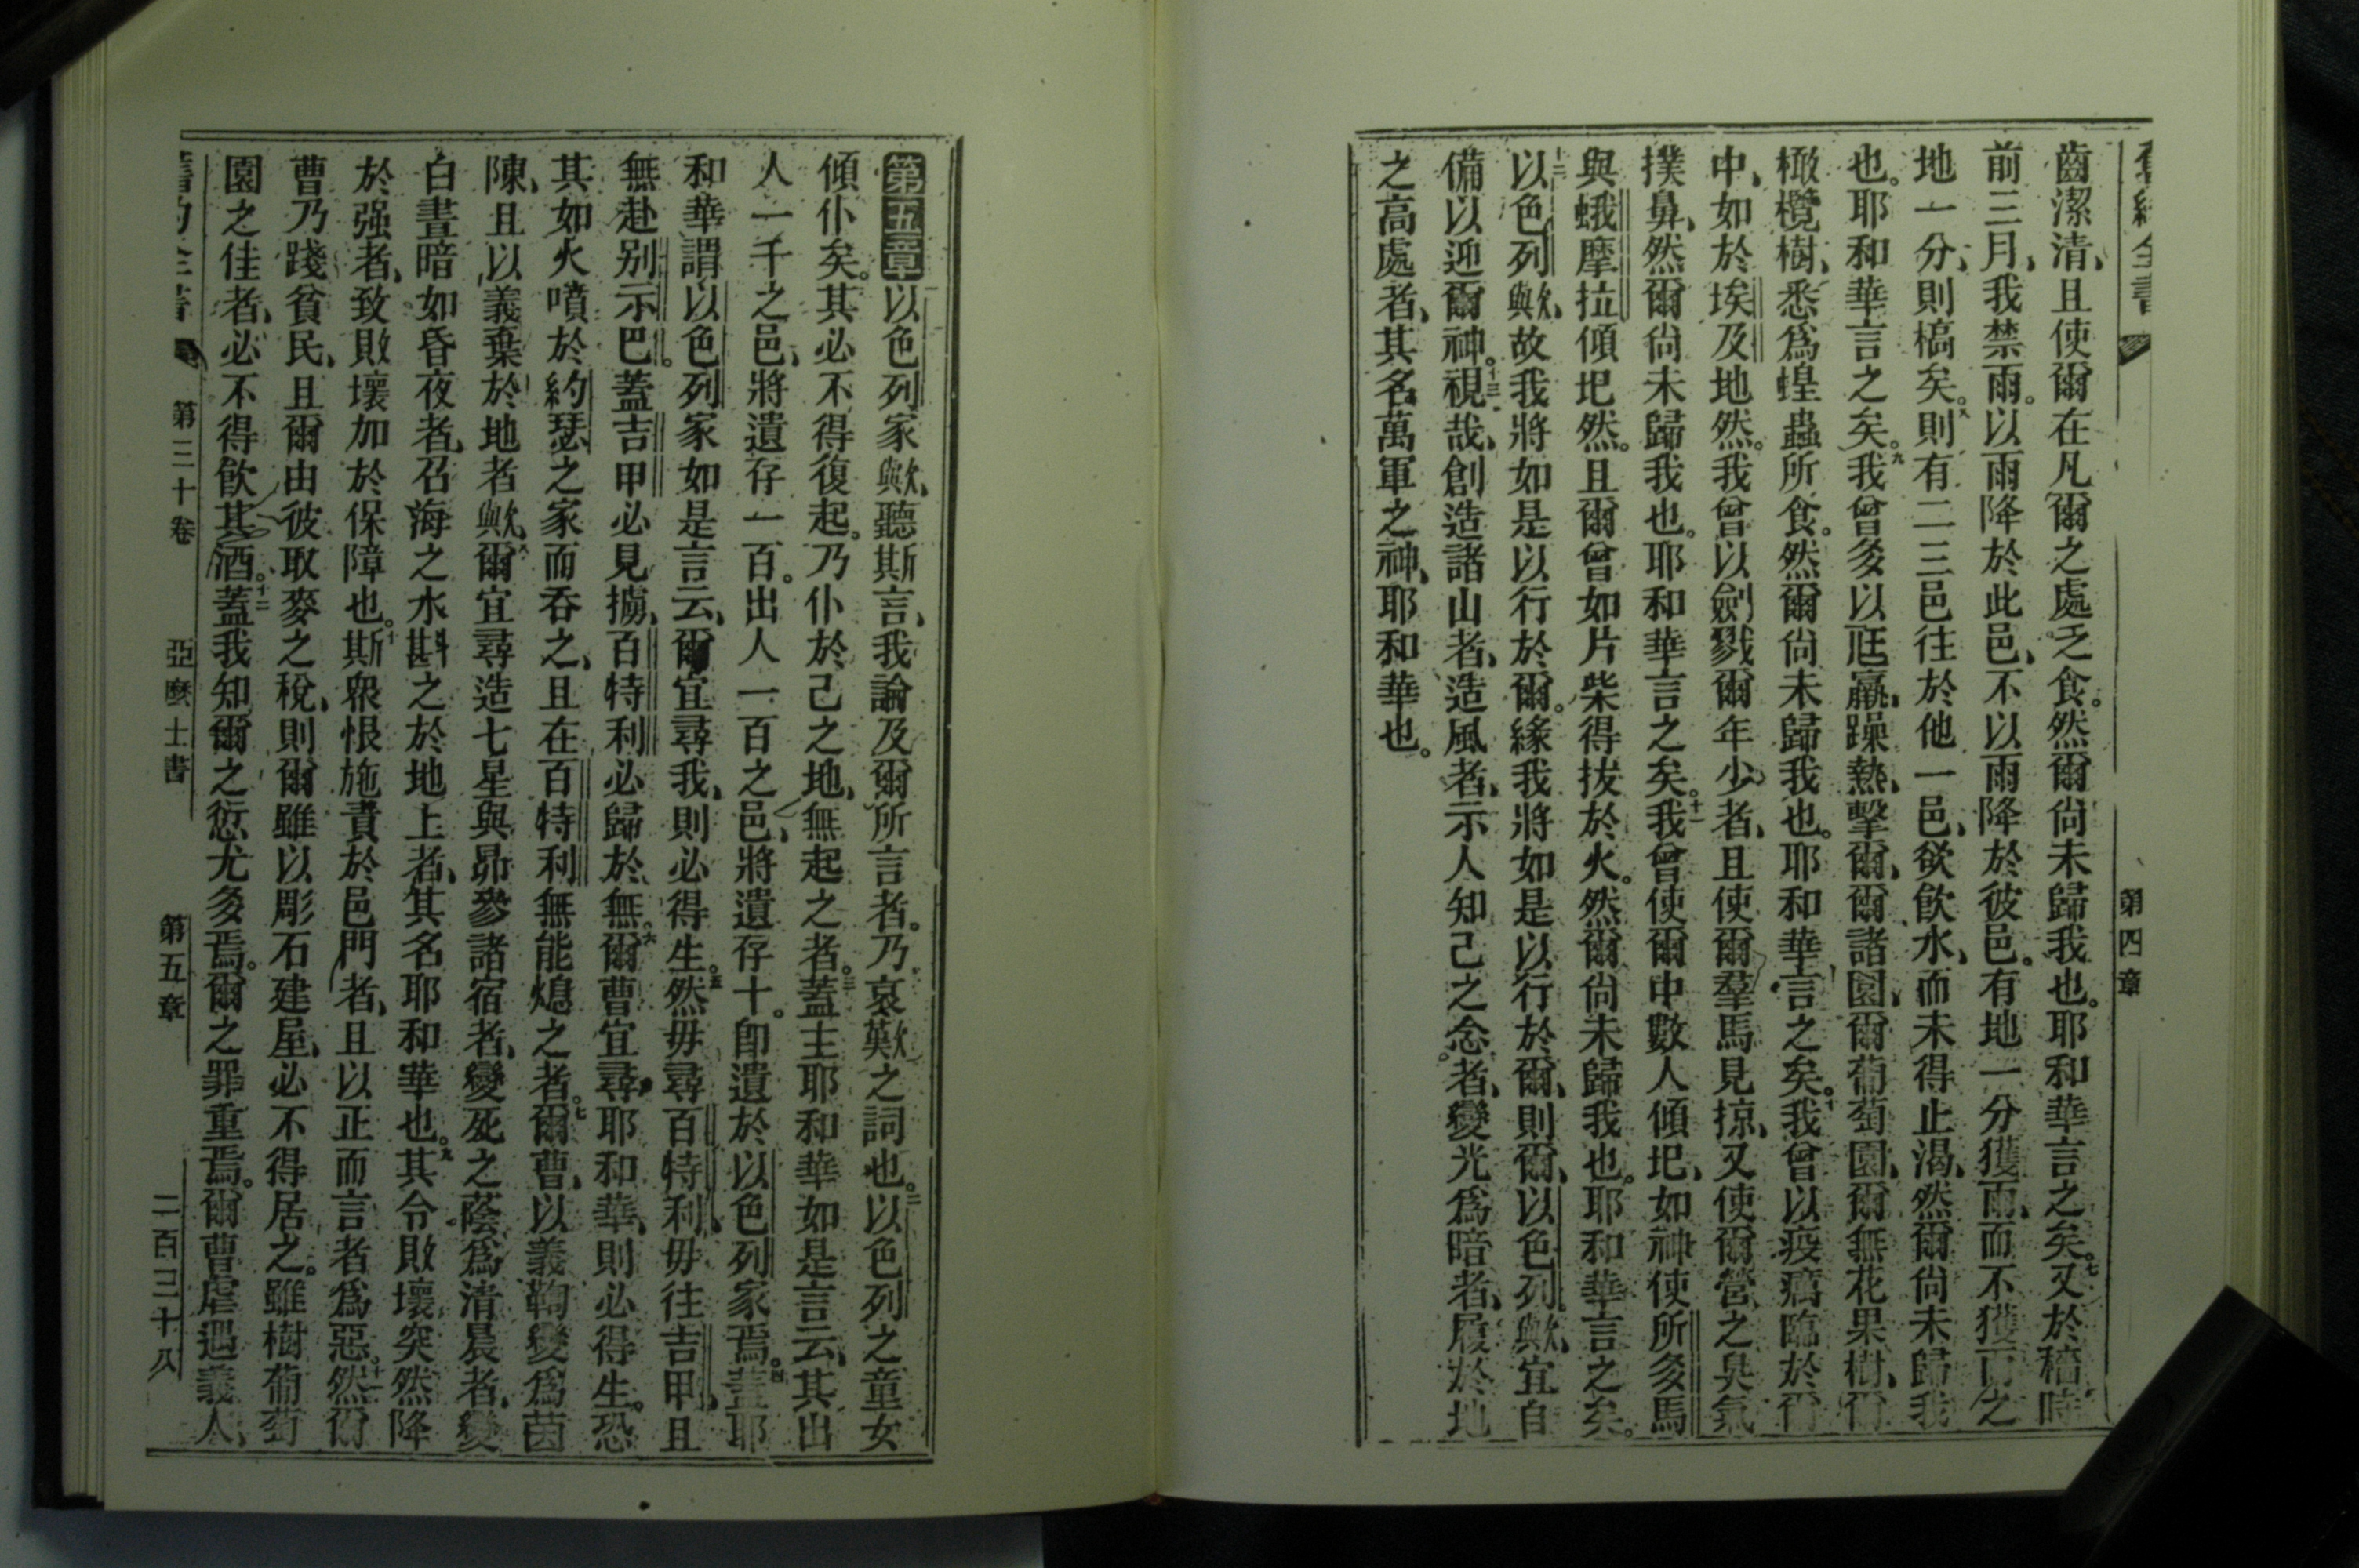 舊約全書
第四章
齒潔清、且使爾在凡爾之處乏食。然爾尙未歸我也。耶和華言之矣。七又於穡時
前三月、我禁雨。以雨降於此邑、不以雨降於彼邑。有地一分獲雨、而不獲雨之
地一分、則槁矣。八則有二三邑往於他一邑、欲飮水、而未得止渴、然爾尙未歸我
也。耶和華言之矣。九我曾多以尫羸、躁熱、擊爾、爾諸園、爾葡萄園、爾無花果樹、爾
橄欖樹、悉爲蝗蟲所食。然爾尙未歸我也。耶和華言之矣。十我曾以疫癘臨於爾
中、如於埃及地然。我曾以劍戮爾年少者、且使爾羣馬見掠、又使爾營之臭氣
撲鼻、然爾尙未歸我也。耶和華言之矣。十一我曾使爾中數人傾圯、如神使所多馬
與蛾摩拉傾圯然。且爾曾如片柴得拔於火。然爾尙未歸我也。耶和華言之矣。
十二以色列歟、故我將如是以行於爾。緣我將如是以行於爾、則爾、以色列歟、宜自
備以迎爾神。十三視哉、創造諸山者、造風者、示人知己之念者、變光爲暗者、履於地
之高處者、其名萬軍之神、耶和華也。
第五章以色列家歟、聽斯言、我論及爾所言者。乃哀歎之詞也。二以色列之童女
傾仆矣。其必不得復起。乃仆於己之地、無起之者。三蓋主耶和華如是言云、其出
人一千之邑、將遺存一百。出人一百之邑、將遺存十。卽遺於以色列家焉。四蓋耶
和華謂以色列家如是言云、爾宜尋我、則必得生。五然毋尋百特利、毋往吉甲、且
無赴别示巴。蓋吉甲必見擄、百特利必歸於無。六爾曹宜尋耶和華、則必得生。恐
其如火噴於約瑟之家而吞之、且在百特利無能熄之者。七爾曹、以義鞫變爲茵
陳、且以義棄於地者歟、八爾宜尋造七星與昴參諸宿者、變死之蔭爲清晨者、變
白晝暗如昏夜者、召海之水斟之於地上者、其名耶和華也。九其令敗壞突然降
於强者、致敗壞加於保障也。十斯衆恨施責於邑門者、且以正而言者爲惡。十一然爾
曹乃踐貧民、且爾由彼取麥之稅、則爾雖以彫石建屋、必不得居之。雖樹葡萄
園之佳者、必不得飮其酒。十二蓋我知爾之愆尤多焉。爾之罪重焉。爾曹虐遇義人、
舊約全書
第三十卷
亞麼士書
第五章
二百三十八